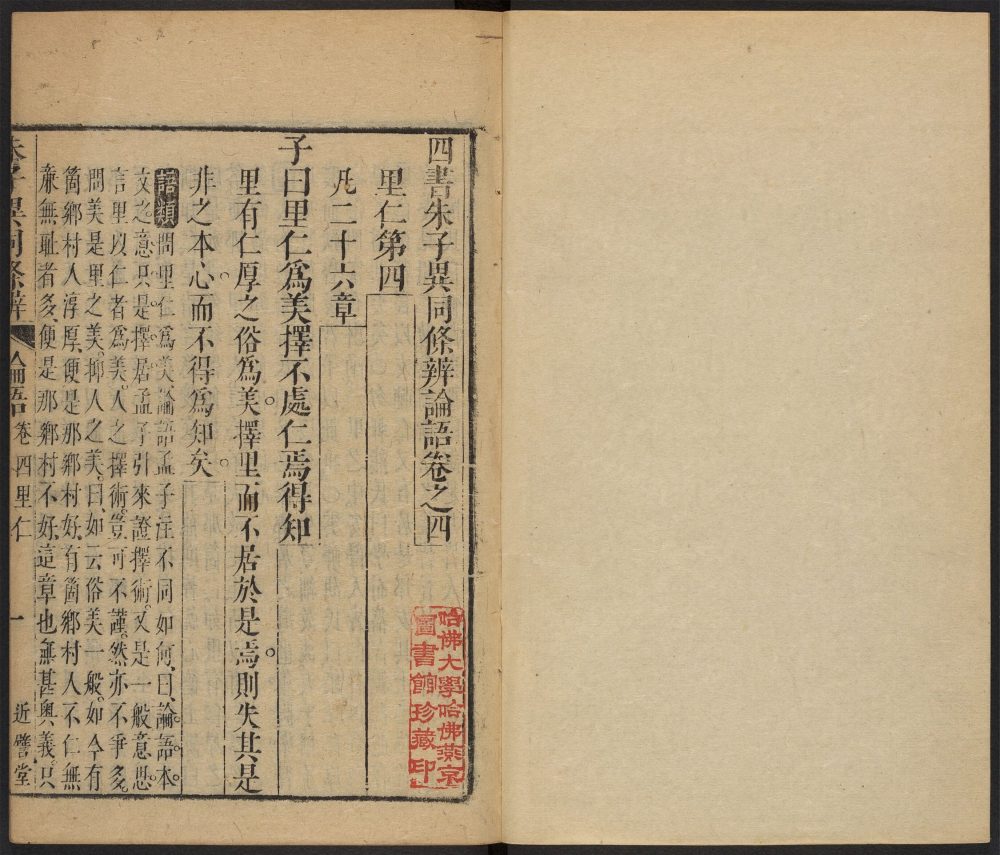 四書朱子異同條辨論語卷之四
里仁第四
凡二十六章
子曰里仁爲美擇不處仁焉得知
里有仁厚之俗爲美擇里而不居於是焉則失其是
非之本心而不得爲知矣
語類問里仁爲美論語孟子注不同如何曰論語本
文之意只是擇居孟子引來證擇術又是一般意思
言里以仁者爲美人之擇術豈可不謹然亦不爭多
問美是里之美抑人之美曰如云俗美一般如今有
箇鄉村人淳厚便是那鄉村好有箇鄉村人不仁無
廉無恥者多便是那鄉村不好這章也無甚奧義只
朱子異同條辨 論語 卷四里仁 一 近譬堂
哈佛大學哈佛燕京
圖書館珍藏印